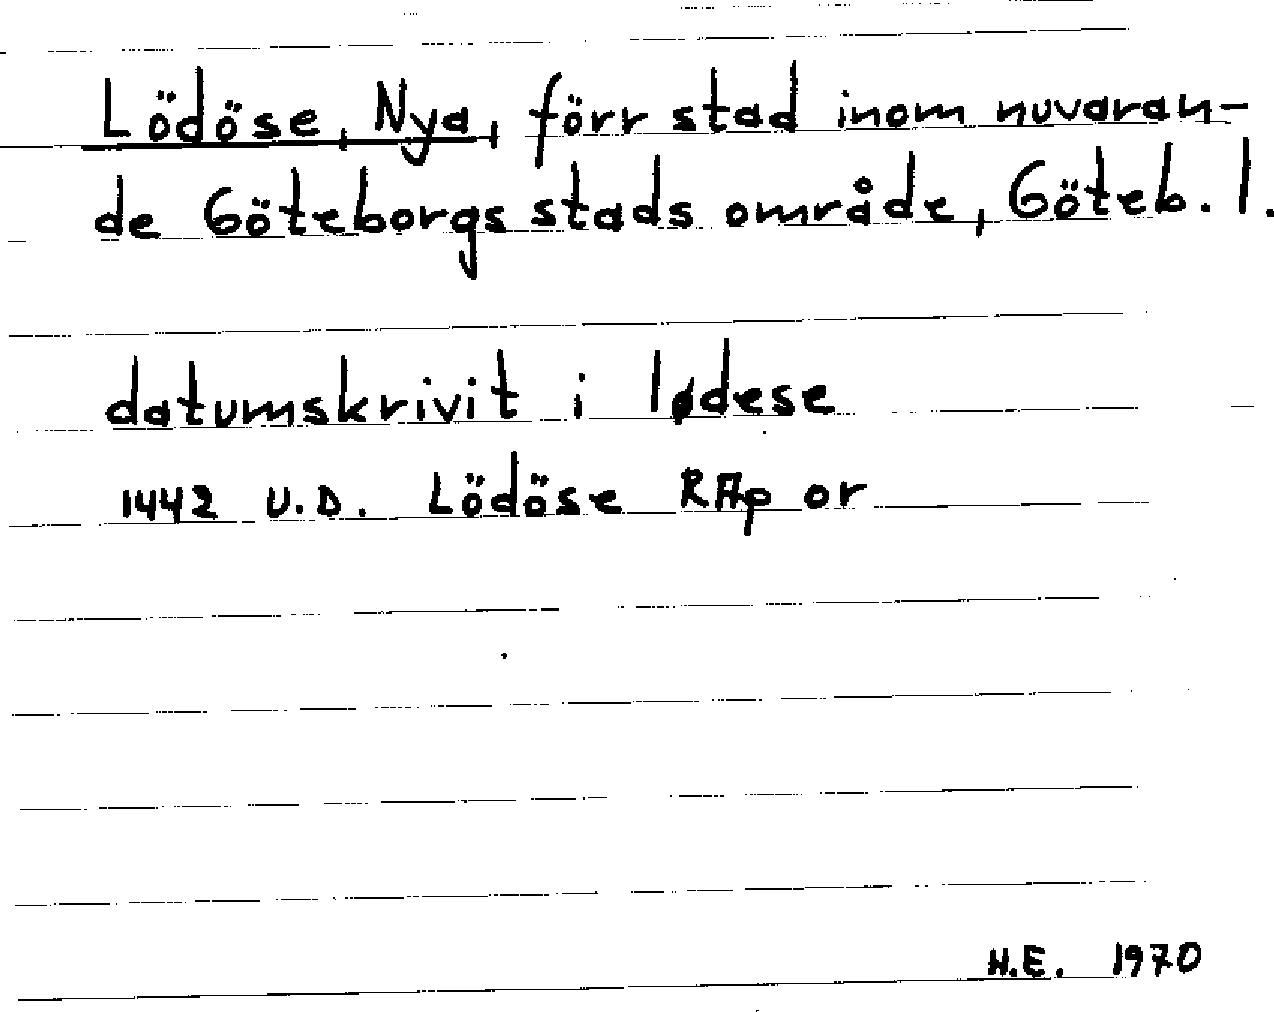 Lödöse, Nya, förr stad inom nuvaran-
de Göteborgs stads område, Göteb. l.
datumskrivit i lødese
1442 U.D. Lödöse RAp or
H.E. 1970